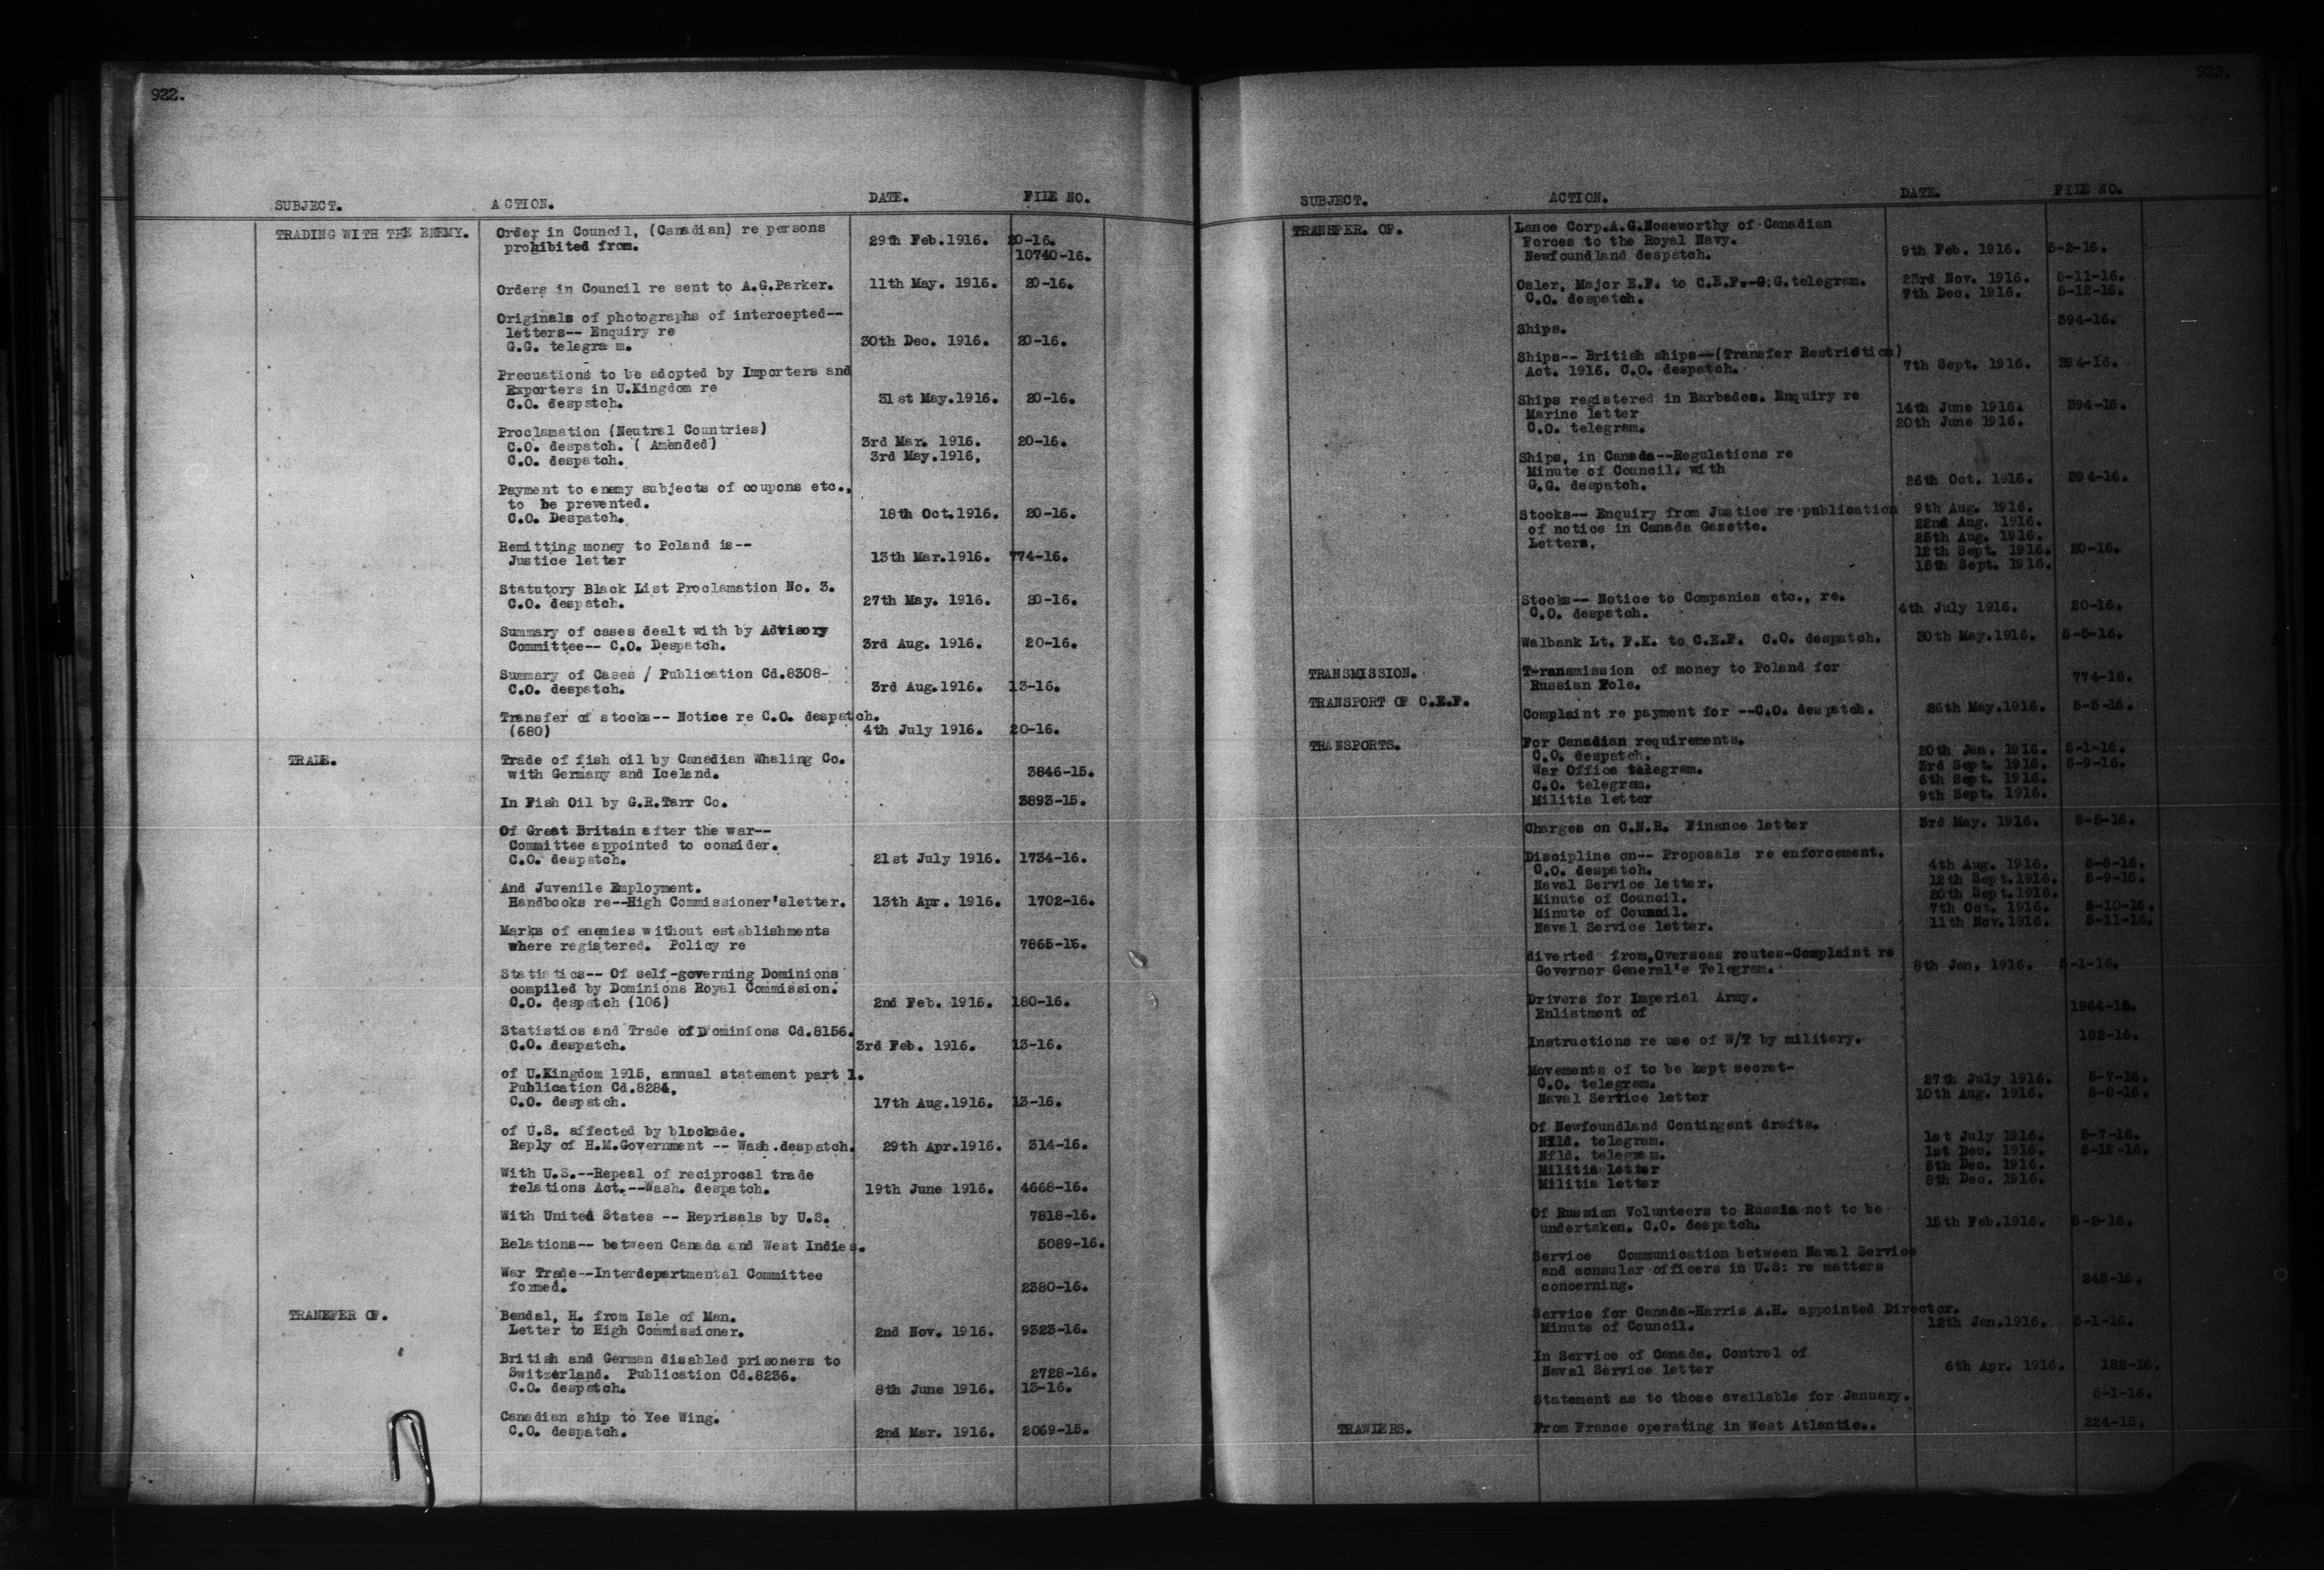 922.
SUBJECT. ACTION. DATE. FILE NO.
TRADING WITH THE ENEMY. Order in Council, (Canadian) re persons
prohibited from. 29th Feb.1916. 20-16.
10740-16.
Orders in Council re sent to A.G.Parker. 11th May. 1916. 20-16.
Originals of photographs of intercepted--
letters-- Enquiry re
G.G. telegra m. 30th Dec. 1916. 20-16.
Precuations to be adopted by Importers and
Exporters in U.Kingdom re
C.O. despatch. 31st May.1916. 20-16.
Proclamation (Neutral Countries)
C.O. despatch. ( Amended) 3rd Mar. 1916. 20-16.
C.O. despatch. 3rd May.1916,
Payment to enemy subjects of coupons etc.,
to be prevented.
C.O. Despatch. 18th Oct.1916. 20-16.
Remitting money to Poland is--
Justice letter 13th Mar.1916. 774-16.
Statutory Black List Proclamation No. 3.
C.O. despatch. 27th May. 1916. 20-16.
Summary of cases dealt with by Advisory
Committee-- C.O. Despatch. 3rd Aug. 1916. 20-16.
Summary of Cases / Publication Cd.8308-
C.O. despatch. 3rd Aug.1916. 13-16.
Transfer of stocks-- Notice re C.O. despatch.
(680) 4th July 1916. 20-16.
TRADE. Trade of fish oil by Canadian Whaling Co.
with Germany and Iceland. 3846-15.
In Fish Oil by G.R.Tarr Co. 3893-15.
Of Great Britain after the war--
Committee appointed to consider.
C.O. despatch. 21st July 1916. 1734-16.
And Juvenile Employment.
Handbooks re--High Commissioner'sletter. 13th Apr. 1916. 1702-16.
Marks of enemies without establishments
where registered. Policy re 7865-15.
Statistics-- Of self-governing Dominions
compiled by Dominions Royal Commission.
C.O. despatch (106) 2nd Feb. 1916. 180-16.
Statistics and Trade of Dominions Cd.8156.
C.O. despatch. 3rd Feb. 1916. 13-16.
of U.Kingdom 1915, annual statement part 1.
Publication Cd.8284,
C.O. despatch. 17th Aug.1916. 13-16.
of U.S. affected by blockade.
Reply of H.M.Government -- Wash.despatch. 29th Apr.1916. 314-16.
With U.S.--Repeal of reciprocal trade
relations Act.--Wash. despatch. 19th June 1916. 4668-16.
With United States -- Reprisals by U.S. 7818-16.
Relations-- between Canada and West Indies. 5089-16.
War Trade--Interdepartmental Committee
formed. 2380-16.
TRANSFER OF. Bendal, H. from Isle of Man.
Letter to High Commissioner. 2nd Nov. 1916. 9323-16.
British and German disabled prisoners to
Switzerland. Publication Cd.8236. 2728-16.
C.O. despatch. 8th June 1916. 13-16.
Canadian ship to Yee Wing.
C.O. despatch. 2nd Mar. 1916. 2069-15.
923.
SUBJECT. ACTION. DATE. FILE NO.
TRANSFER. OF. Lance Corp.A.G.Noseworthy of Canadian
Forces to the Royal Navy.
Newfoundland despatch. 9th Feb. 1916. 5-2-16.
Osler, Major E.F. to C.E.F.-G;G.telegram. 23rd Nov. 1916. 5-11-16.
C.O. despatch. 7th Dec. 1916. 5-12-16.
Ships. 394-16.
Ships-- British ships--(Transfer Restriction)
Act. 1916. C.O. despatch. 7th Sept. 1916. 394-16.
Ships registered in Barbados. Enquiry re
Marine letter 14th June 1916. 394-16.
C.O. telegram. 20th June 1916.
Ships, in Canada--Regulations re
Minute of Council. with
G.G. despatch. 26th Oct. 1916. 394-16.
Stocks-- Enquiry from Justice re publication 9th Aug. 1916.
of notice in Canada Gazette. 22nd Aug. 1916.
Letters, 25th Aug. 1916.
12th Sept. 1916. 20-16.
15th Sept. 1916.
Stocks-- Notice to Companies etc., re.
C.O. despatch. 4th July 1916. 20-16.
Walbank Lt. F.K. to C.E.F. C.O. despatch. 30th May.1916. 5-5-16.
TRANSMISSION. T-ransmission of money to Poland for
Russian Pole. 774-16.
TRANSPORT OF C.E.F. Complaint re payment for --C.O. despatch. 26th May.1916. 5-5-16.
TRANSPORTS. For Canadian requirements.
C.O. despatch. 20th Jan. 1916. 5-1-16.
War Office telegram. 3rd Sept. 1916. 5-9-16.
C.O. telegram. 6th Sept. 1916.
Militia letter 9th Sept. 1916.
Charges on C.N.R. Finance letter 3rd May. 1916. 5-5-16.
Discipline on-- Proposals re enforcement.
C.O. despatch. 4th Aug. 1916. 5-8-16.
Naval Service letter. 12th Sept.1916. 5-9-16.
Minute of Council. 20th Sept.1916.
Minute of Council. 7th Oct. 1916. 5-10-16.
Naval Service letter. 11th Nov.1916. 5-11-16.
diverted from,Overseas routes-Complaint re
Governor General's Telegram. 8th Jan. 1916. 5-1-16.
Drivers for Imperial Army.
Enlistment of 1964-15.
Instructions re use of W/T by military. 182-16.
Movements of to be kept secret-
C.O. telegram. 27th July 1916. 5-7-16.
Naval Service letter 10th Aug. 1916. 5-8-16.
Of Newfoundland Contingent drafts.
Nfld. telegram. 1st July 1916. 5-7-16.
Nfld. telegram. 1st Dec. 1916. 5-12-16.
Militia letter 5th Dec. 1916.
Militia letter 8th Dec. 1916.
Of Russian Volunteers to Russia not to be
undertaken. C.O. despatch. 15th Feb.1916. 5-2-16.
Service Communication between Naval Service
and consular officers in U.S: re matters
concerning. 245-16.
Service for Canada-Harris A.H. appointed Director.
Minute of Council. 12th Jan.1916. 5-1-16.
In Service of Canada. Control of
Naval Service letter 6th Apr. 1916. 182-16.
Statement as to those available for January. 5-1-16.
TRAWLERS. From France operating in West Atlantic.. 224-15.